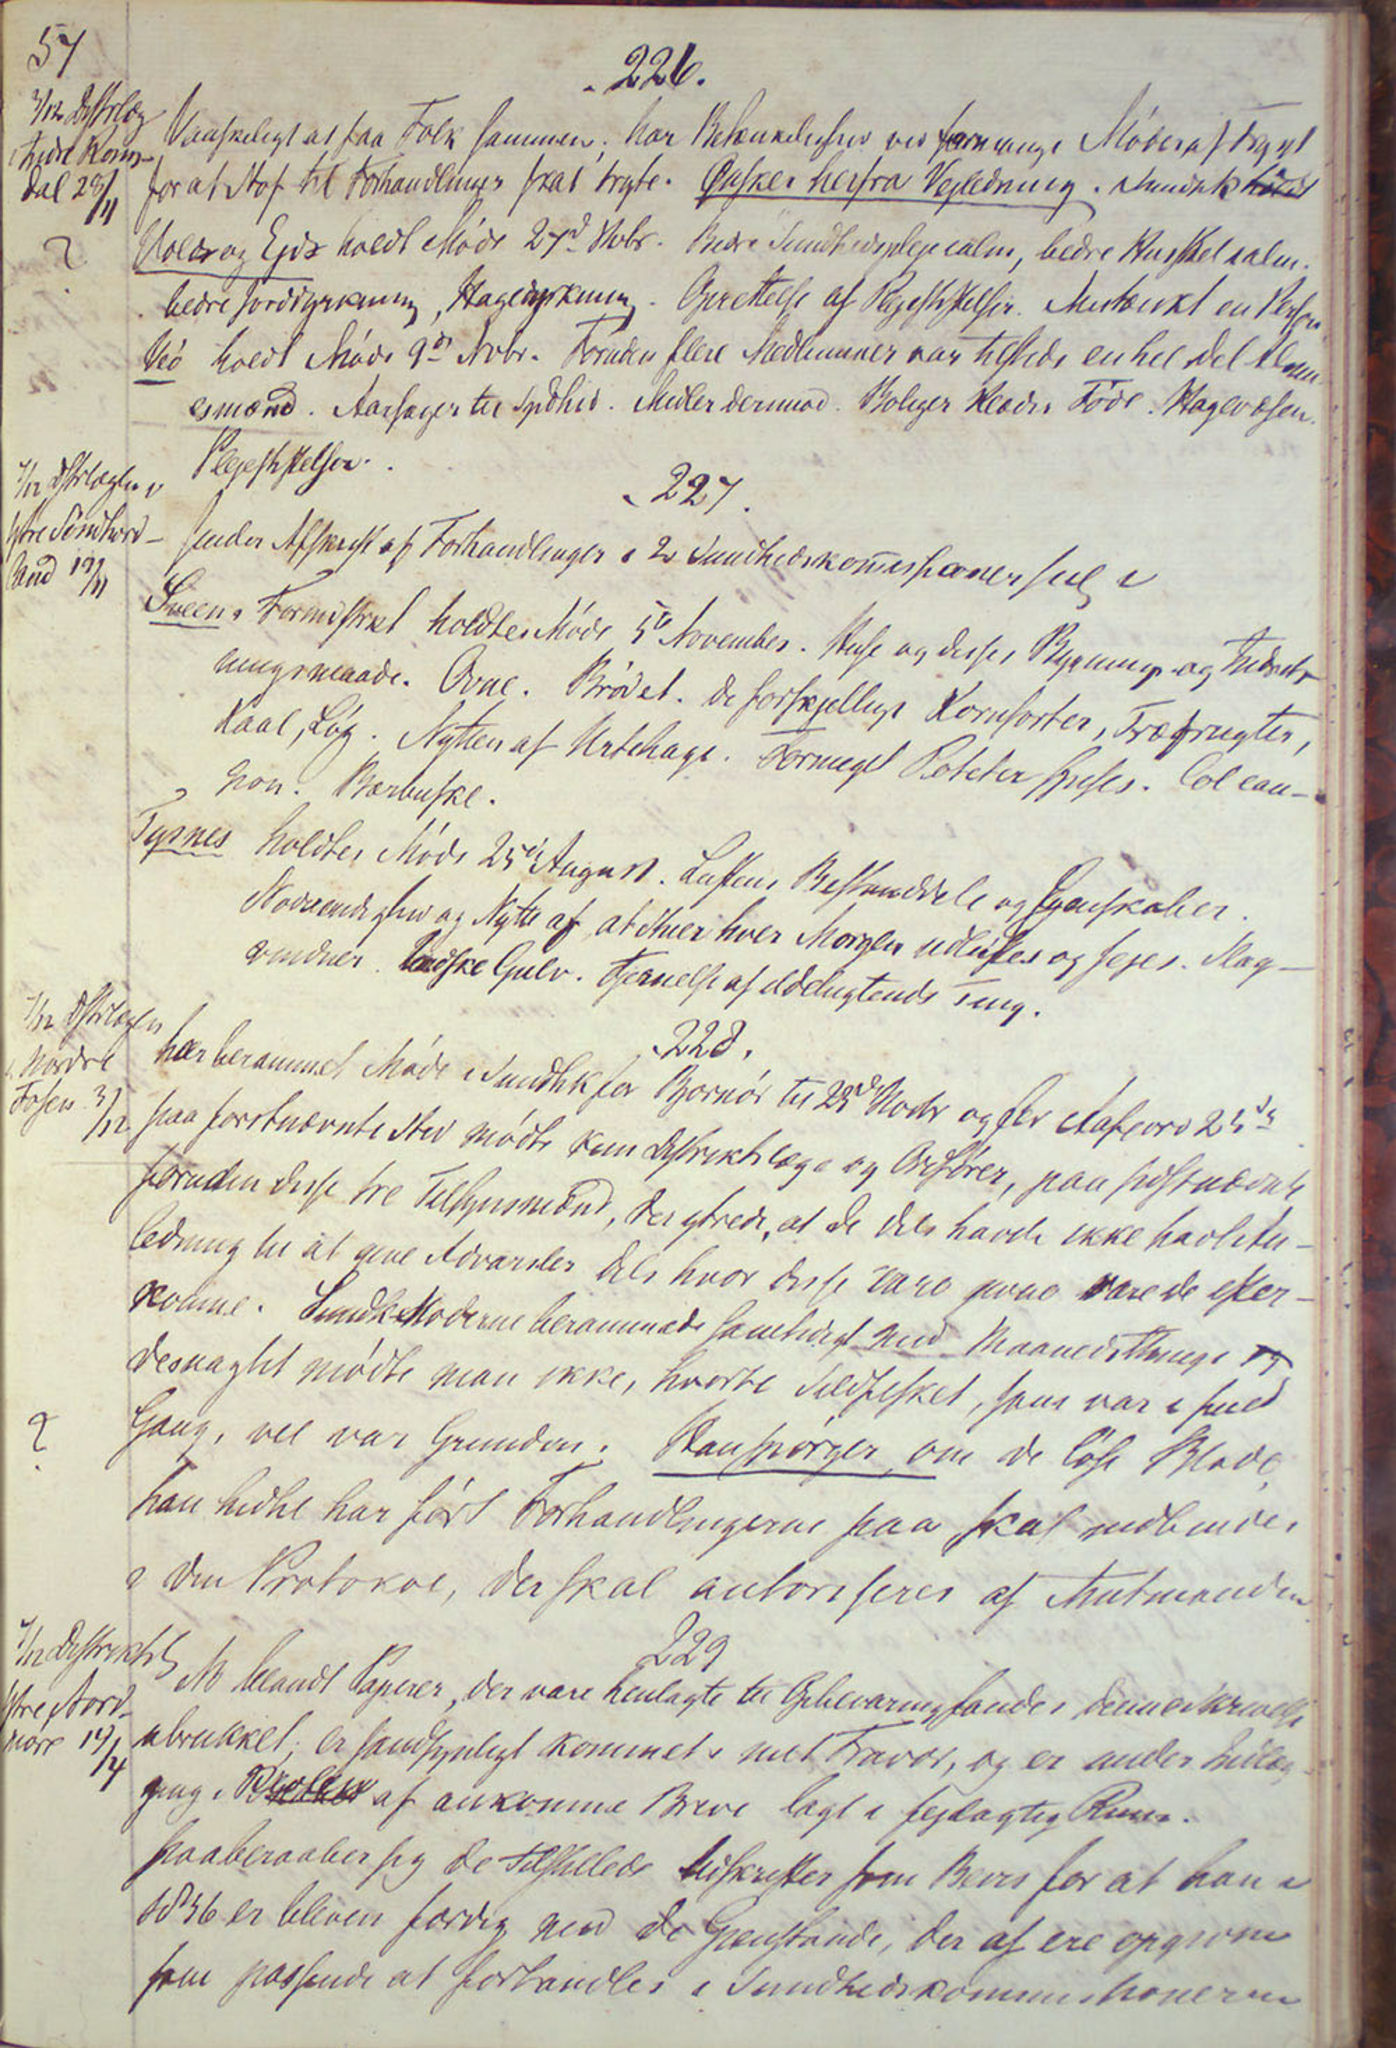 57
226.
3/12 Distrlæg
i Indre Roms-
dal 28/11
Vanskeligt at faa Folk sammen; har Betænkeligheder ved for mange Møder af Frygt
for at Stof til Forhandlinger skal tryte. Ønsker herfra Vejledning. Sundhk
?
Volds og Ejds holdt Møde 27d Novbr. Bedre Sundhedsplejealm, bedre Husstelalm.
bedre Jorddyrkning, Hagedyrkning. Oprettelse af Plejestiftelser. en Person
Veø holdt Møde 9de Novbr. Foruden flere Medlemmer var tilstede en hel Del Alm-
uesmænd. Aarsager til Spdhed. Midler derimod. Boliger Klæder Føde. Hagevæsen.
Plejestiftelser.
7/12 Distrlægen i
Ytre Søndhord-
land 17/11
227.
sender Afskrift af Forhandlinger i 2 Sundhedskommissioner
Sveen i Formdstrkt holdtes Møde 5te November. Huse og disses Bygnings og Indret-
ningsmaade. Ovne. Brødet. De forskjellige Kornsorter, Træfrugter,
Kaal, Løg. Nytten af Urtehage. Formeget Poteter spises.
Bærbuske.
Tysnes holdtes Møde 25de August. Luftens Bestanddele og Egenskaber.
Nødvendighed og Nytte af, at Stuer hver Morgen udluftes og fejes. Slag-
vinduer. Vadske Gulv. Fjernelse af ildelugtende Ting.
7/12 Dstrlægen
i Nordre
Fosen 3/12
228.
har berammet Møde i Sundhk for Bjørnør til 23de Novbr og for Aafjord 25de
paa førstnævnte Sted mødte kun Distriktslæge og Ordfører, paa sidstnævnte
foruden disse tre Tilsynsmænd, der ytrede, at de dels havde ikke havt An-
ledning til at give Advarsler dels hvor disse vare givne vare de efter-
komne. Sundk Møderne berammede samtidigt med Maanedsthinge og
desuagtet mødte man ikke, hvortil Sildfisket, som var i fuld
Gang, vel var Grunden. Han spørger, om de løse Blade,
?
han hidtil har ført Forhandlingerne paa skal indbindes
i den Protokol, der skal autoriseres af Amtmanden
7/12 Distriktsl
Ytre Nord-
møre 14/4
229
At blandt Papirer, der vare henlagte til Opbevaring fandtes denne Skrivelse
ubrukket; er sandsynligt kommet i mit Fravær, og er under Indlæg-
ning i af ankomne Breve lagt i fejlagtig Rum.
paaberaaber sig de tilstillede Udskrifter som Bevis for at han i
er bleven færdig med de Gjenstande, der af ere opgivne
som passende at forhandles i Sundhedskommissionerne